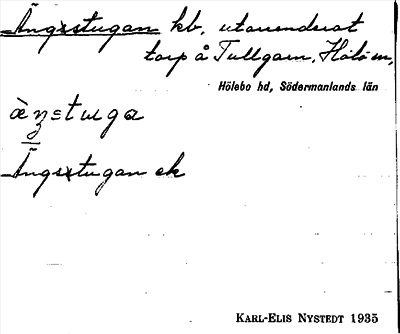 Ängsstugan kb, utanendrat
torp å Tullgarn, Hölö sn,
Hölebo hd, Södermanlands län
ä̀ŋstuga
Ängsstugan ek
KARL-ELIS NYSTEDT 1935